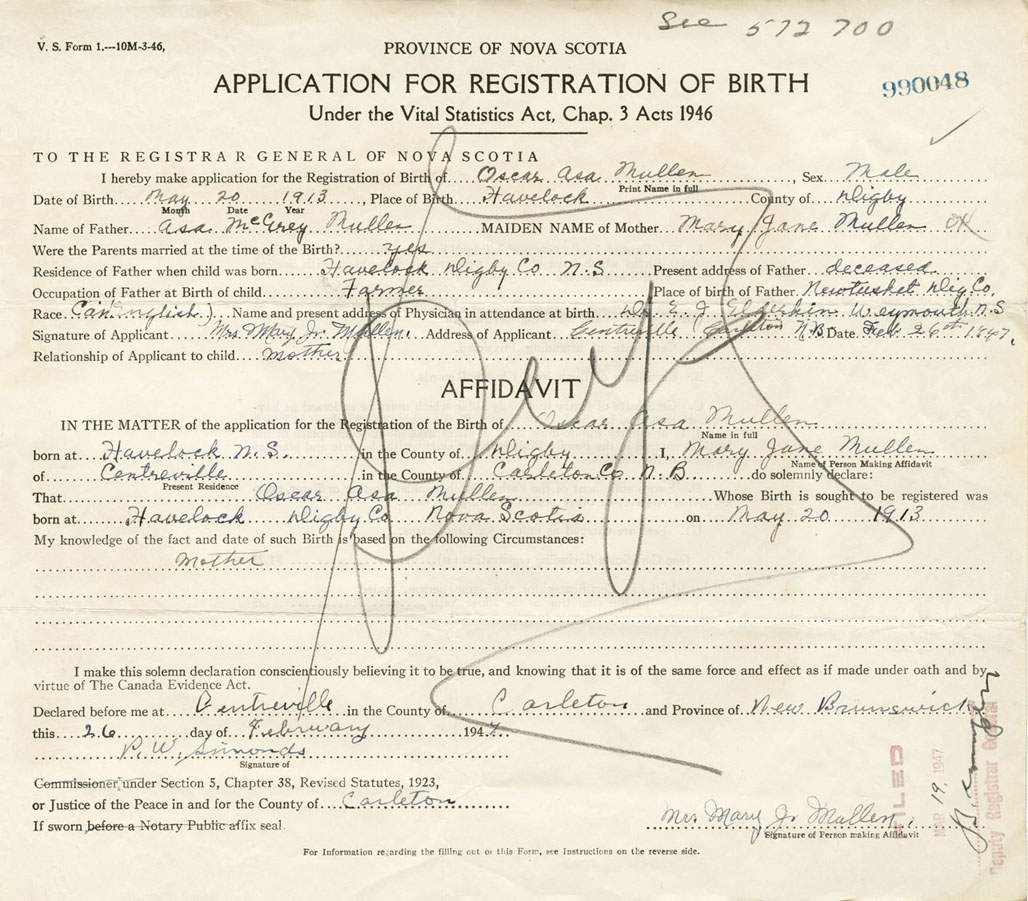 See 572 700
V. S. Form 1.---10M-3-46,
PROVINCE OF NOVA SCOTIA
APPLICATION FOR REGISTRATION OF BIRTH
990048
Under the Vital Statistics Act, Chap. 3 Acts 1946
TO THE REGISTRAR GENERAL OF NOVA SCOTIA
I hereby make application for the Registration of Birth of Oscar Asa Mullen, Sex Male
Print Name in full
Date of Birth May 20 1913, Place of Birth Havelock County of Digby
Month Date Year
Name of Father Asa McGrey Mullen MAIDEN NAME of Mother Mary Jane Mullen OK
Were the Parents married at the time of the Birth? yes
Residence of Father when child was born Havelock Digby Co N.S Present address of Father deceased
Occupation of Father at Birth of child Farmer Place of birth of Father Newtusket Dig. Co.
Race Can (English) Name and present address of Physician in attendance at birth Dr E. J. Elderkin Weymouth N.S
Signature of Applicant Mrs Mary J. Mullen. Address of Applicant Centreville Carleton N.B Date Feb 26th 1947.
Relationship of Applicant to child mother
AFFIDAVIT
IN THE MATTER of the application for the Registration of the Birth of Oscar Asa Mullen
Name in full
born at Havelock N.S. in the County of Digby I, Mary Jane Mullen
Name of Person Making Affidavit
of Centreville in the County of Carleton Co N.B do solemnly declare:
Present Residence
That Oscar Asa Mullen Whose Birth is sought to be registered was
born at Havelock Digby Co Nova Scotia on May 20 1913
My knowledge of the fact and date of such Birth is based on the following Circumstances:
Mother
I make this solemn declaration conscientiously believing it to be true, and knowing that it is of the same force and effect as if made under oath and by
virtue of The Canada Evidence Act.
Declared before me at Centreville in the County of Carleton and Province of New Brunswick
this 26 day of February 1947
P. W. Simonds
Signature of
Commissioner under Section 5, Chapter 38, Revised Statutes, 1923,
or Justice of the Peace in and for the County of Carleton
If sworn before a Notary Public affix seal.
Mrs Mary J. Mullen.
Signature of Person making Affidavit
For Information regarding the filling out of this Form, see Instructions on the reverse side.
FILED
MAR 19, 1947
Deputy Registrar General